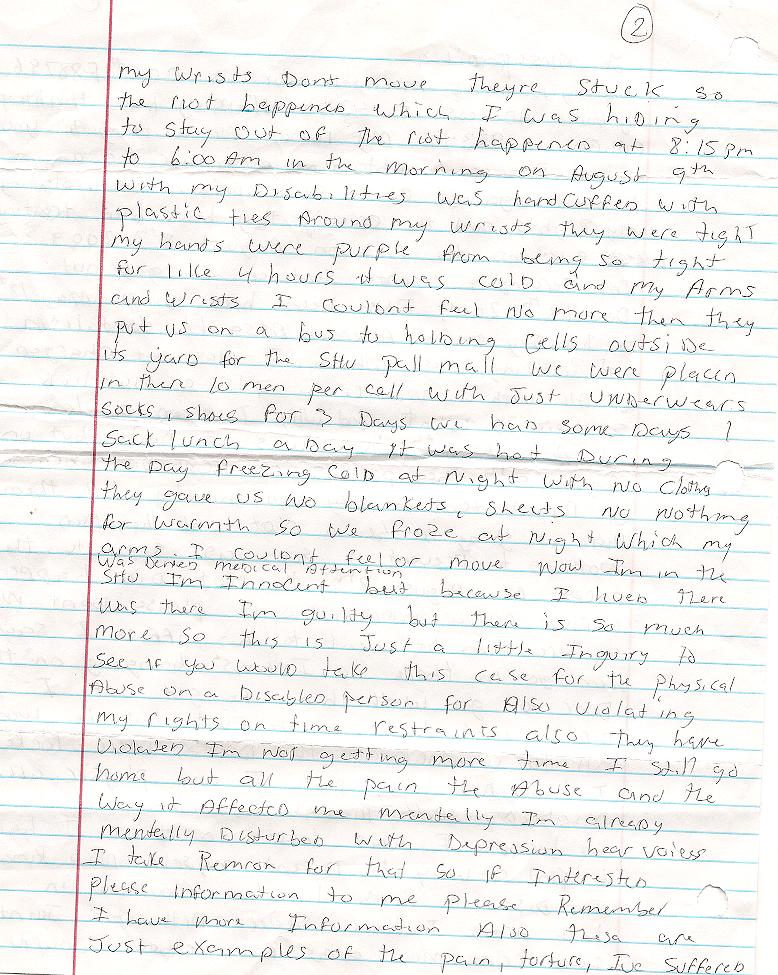 2
my wrists Dont move theyre stuck so
the riot happened which I was hiding
to stay out of the riot happened at 8:15 pm
to 6:00 Am in the morning on August 9th
with my Disabilities was handcuffed with
plastic ties Around my wrists they were tight
my hands were purple from being so tight
for like 4 hours it was cold and my Arms
and wrists I couldnt feel no more then they
put us on a bus to holding cells outside
its yard for the SHU pall mall we were placed
in there 10 men per cell with Just underwears
socks, shoes for 3 Days we had some Days 1
sack lunch a Day it was hot During
the Day freezing cold at Night with no Clothes
they gave us no blankets, sheets no nothing
for warmth so we froze at Night which my
arms I couldnt feel or move Now Im in the
was Denied medical Attention
SHU Im Innocent but because I lived there
was there Im guilty but there is so much
more so this is Just a little Inquiry to
see if you would take this case for the physical
Abuse on a Disabled person for Also violating
my rights on time restraints also they have
violated Im not getting more time I still go
home but all the pain the Abuse and the
way it Affected me mentally Im already
mentally Disturbed with Depression hear voices
I take Remron for that so if Interested
please Information to me please Remember
I have more Information Also these are
Just examples of the pain, torture, Ive suffered